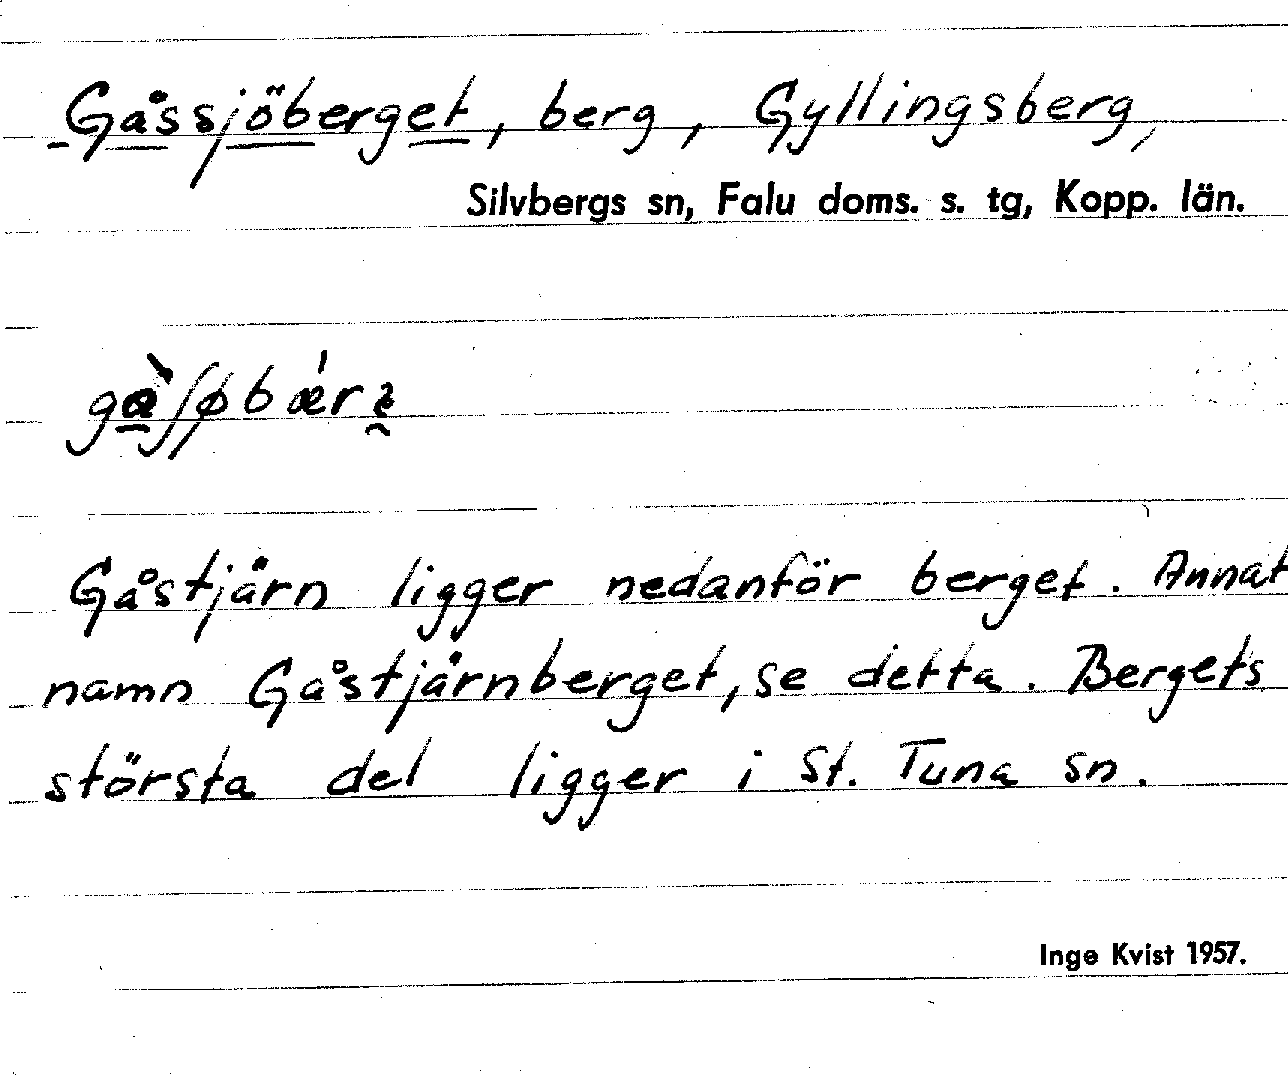 Gåssjöberget, berg, Gyllingsberg,
Silvbergs sn, Falu doms. s. tg, Kopp. län.
Gåstjärn ligger nedanför berget. Annat
namn Gåstjärnberget, se detta. Bergets
största del ligger i St. Tuna sn.
Inge Kvist 1957.